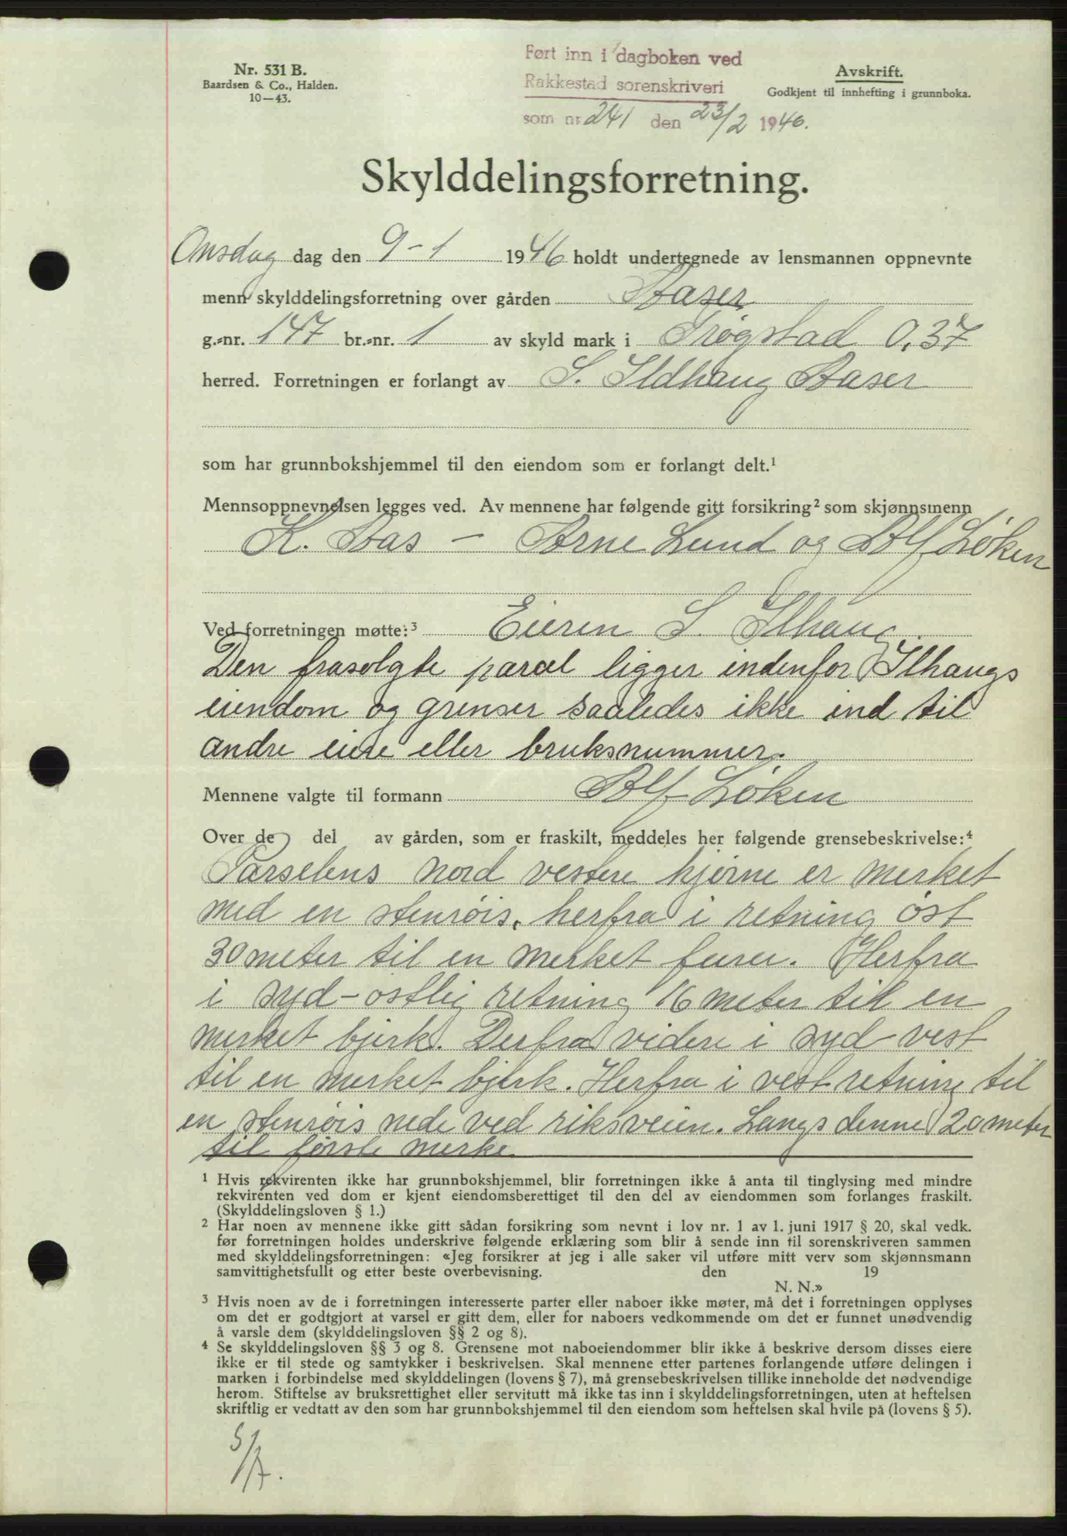 Nr. 531 B.
Baardsen & Co., Halden.
10—43.
Ført inn i dagboken ved
Rakkestad sorenskriveri
som nr. 241 den 23/2 1946.
Avskrift.
Godkjent til innhefting i grunnboka.
Skylddelingsforretning.
Onsdag dag den 9-1 1946 holdt undertegnede av lensmannen oppnevnte
menn skylddelingsforretning over gården
g.-nr. 147 br.-nr. 1 av skyld mark i Trøgstad 0,37
herred. Forretningen er forlangt av S. Ildhaug
som har grunnbokshjemmel til den eiendom som er forlangt delt.¹
Mennsoppnevnelsen legges ved. Av mennene har følgende gitt forsikring² som skjønnsmenn
K. Aas — Arne Lund og Alf Løken
Ved forretningen møtte:³ Eieren S. Ilhaug.
Den frasolgte parcel ligger indenfor Ilhaugs
eiendom og grenser saaledes ikke ind til
andre eiere eller bruksnummer.
Mennene valgte til formann Alf Løken
Over de del av gården, som er fraskilt, meddeles her følgende grensebeskrivelse:⁴
Parselens nord vestere hjørne er merket
med en stenrøis, herfra i retning øst
30 meter til en merket furu. Herfra
i syd-ostlig retning 16 meter til en
merket bjerk. Derfra videre i syd-vest
til en merket bjerk. Herfra i vest retning til
en stenrøis nede ved riksveien. Langs denne 20 meter
til første merke.
¹ Hvis rekvirenten ikke har grunnbokshjemmel, blir forretningen ikke å anta til tinglysing med mindre
rekvirenten ved dom er kjent eiendomsberettiget til den del av eiendommen som forlanges fraskilt.
(Skylddelingsloven § 1.)
² Har noen av mennene ikke gitt sådan forsikring som nevnt i lov nr. 1 av 1. juni 1917 § 20, skal vedk.
før forretningen holdes underskrive følgende erklæring som blir å sende inn til sorenskriveren sammen
med skylddelingsforretningen: «Jeg forsikrer at jeg i alle saker vil utføre mitt verv som skjønnsmann
samvittighetsfullt og etter beste overbevisning. den 19
N. N.»
³ Hvis noen av de i forretningen interesserte parter eller naboer ikke møter, må det i forretningen opplyses
om det er godtgjort at varsel er gitt dem, eller for naboers vedkommende om det er funnet unødvendig
å varsle dem (skylddelingsloven §§ 2 og 8).
⁴ Se skylddelingsloven §§ 3 og 8. Grensene mot naboeiendommer blir ikke å beskrive dersom disses eiere
ikke er til stede og samtykker i beskrivelsen. Skal mennene etter partenes forlangende utføre delingen i
marken i forbindelse med skylddelingen (lovens § 7), må grensebeskrivelsen tillike inneholde det nødvendige
herom. Stiftelse av bruksrettighet eller servitutt må ikke tas inn i skylddelingsforretningen, uten at heftelsen
skriftlig er vedtatt av den som har grunnbokshjemmel til den eiendom som heftelsen skal hvile på (lovens § 5).